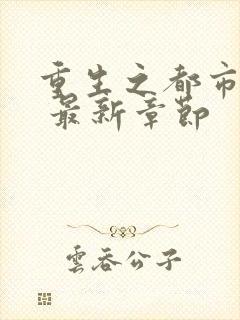 重生之都市
最新章節
雲吞公子